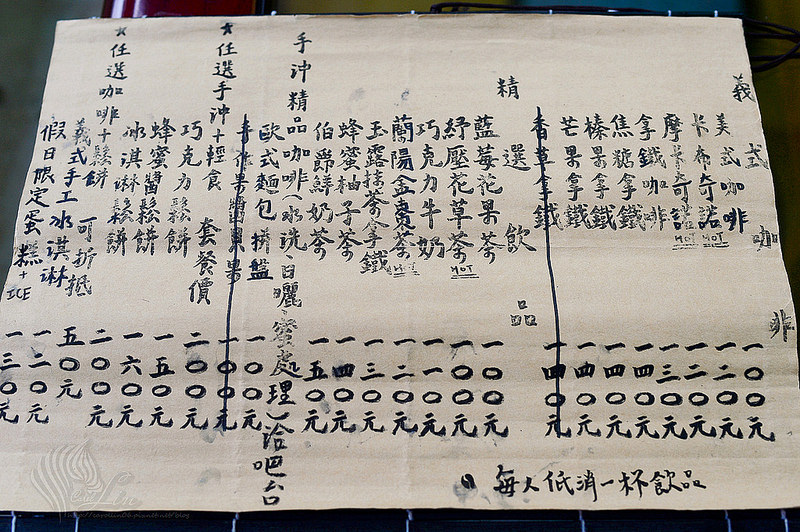 義式咖啡
美式咖啡 一〇〇元
卡布奇諾 HOT 一二〇元
摩卡奇諾 HOT 一二〇元
拿鐵咖啡 一三〇元
焦糖拿鐵 一四〇元
榛果拿鐵 一四〇元
芒果拿鐵 一四〇元
香草拿鐵 一四〇元
精選飲品
藍莓花果茶 一〇〇元
紓壓花草茶 HOT 一〇〇元
巧克力牛奶 一一〇元
蘭陽金棗茶 HOT 一二〇元
玉露抹茶拿鐵 一三〇元
蜂蜜柚子茶 一四〇元
伯爵鮮奶茶 一五〇元
手沖精品咖啡(水洗、日曬、蜜處理)洽吧台
歐式麵包拼盤 一〇〇元
手作果醬 一〇〇元
★任選手沖+輕食 套餐價 二〇〇元
巧克力鬆餅 一五〇元
蜂蜜醬鬆餅 一六〇元
冰淇淋鬆餅 二〇〇元
★任選咖啡+鬆餅 可折抵 五〇元
義式手工冰淇淋 一二〇元
假日限定蛋糕+ICE 一三〇元
每人低消一杯飲品